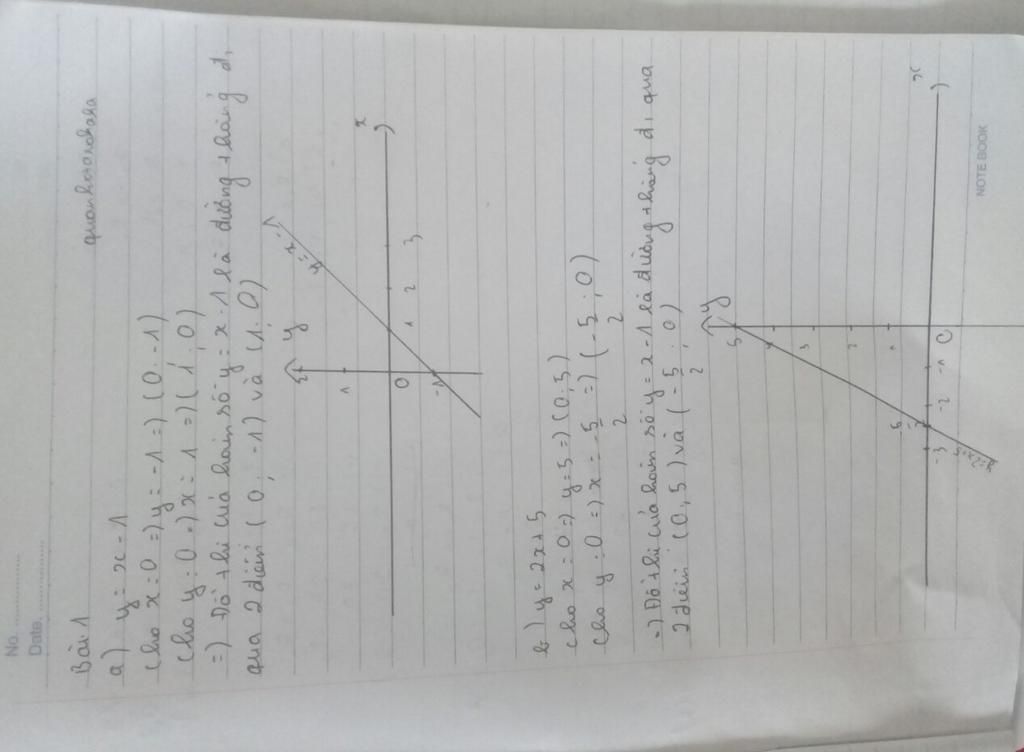 No. ..................
Date. ..................
quanhoanohala
Bài 1
a) y = x - 1
cho x = 0 => y = -1 => (0; -1)
cho y = 0 => x = 1 => (1; 0)
=) Đồ thị của hàm số y = x - 1 là đường thẳng đi
qua 2 điểm (0; -1) và (1; 0)
y
y = x - 1
x
1
O
1
2
3
-1
b) y = 2x + 5
cho x = 0 => y = 5 => (0; 5)
cho y = 0 => x = -5/2 => (-5/2; 0)
=) Đồ thị của hàm số y = x - 1 là đường thẳng đi qua
2 điểm (0; 5) và (-5/2; 0)
y
5
4
3
2
1
x
-3
-5/2
-2
-1
O
y = 2x + 5
NOTE BOOK